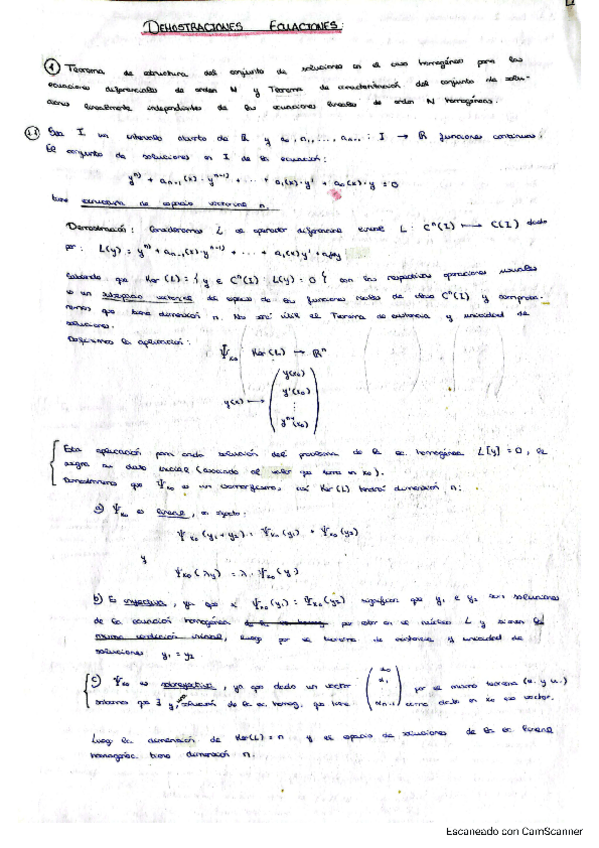 DEMOSTRACIONES ECUACIONES:
① Teorema de estructura del conjunto de soluciones en el caso homogéneo para las
ecuaciones diferenciales de orden N y Teorema de caracterización del conjunto de solu-
ciones linealmente independientes de las ecuaciones lineales de orden N homogéneas.
1.1 Sea I un intervalo abierto de R y a₀, a₁, ..., aₙ₋₁ : I → R funciones continuas.
El conjunto de soluciones en I de la ecuación:
yⁿ⁾ + aₙ₋₁(x)·yⁿ⁻¹⁾ + ... + a₁(x)·y' + a₀(x)·y = 0
tiene estructura de espacio vectorial n.
Demostración: Consideramos L el operador diferencial lineal L: Cⁿ(I) ⟼ C(I) dado
por: L(y) = yⁿ⁾ + aₙ₋₁(x)·yⁿ⁻¹⁾ + ... + a₁(x)y' + a₀(x)y
Sabiendo que Ker(L) = {y ∈ Cⁿ(I) : L(y) = 0} con las respectivas operaciones usuales
es un subespacio vectorial del espacio de las funciones reales de clase Cⁿ(I) y comproba-
remos que tiene dimensión n. Nos será útil el Teorema de existencia y unicidad de
soluciones.
Definimos la aplicación:
Ψₓ₀ Ker(L) → Rⁿ
y(x) ⟼ ( y(x₀)
y'(x₀)
⋮
yⁿ⁻¹(x₀) )
Esta aplicación para cada solución del problema de la ec. homogénea L[y] = 0, le
asigna un dato inicial (asociando el valor que toma en x₀).
Demostremos que Ψₓ₀ es un isomorfismo, así Ker(L) tendrá dimensión n:
a) Ψₓ₀ es lineal, en efecto:
Ψₓ₀(y₁ + y₂) = Ψₓ₀(y₁) + Ψₓ₀(y₂)
y
Ψₓ₀(λy) = λ·Ψₓ₀(y)
b) Es inyectiva, ya que si Ψₓ₀(y₁) = Ψₓ₀(y₂) significa que y₁ e y₂ son soluciones
de la ecuación homogénea por estar en el núcleo L y tienen la
misma condición inicial, luego por el teorema de existencia y unicidad de
soluciones y₁ = y₂
c) Ψₓ₀ es sobreyectiva, ya que dado un vector ( α₀
α₁
⋮
αₙ₋₁ ) por el mismo teorema (e. y u.)
sabemos que ∃ y, solución de la ec. homog, que tiene como dato en x₀ ese vector.
Luego la dimensión de Ker(L) = n y el espacio de soluciones de la ec. lineal
homogénea tiene dimensión n.
Escaneado con CamScanner